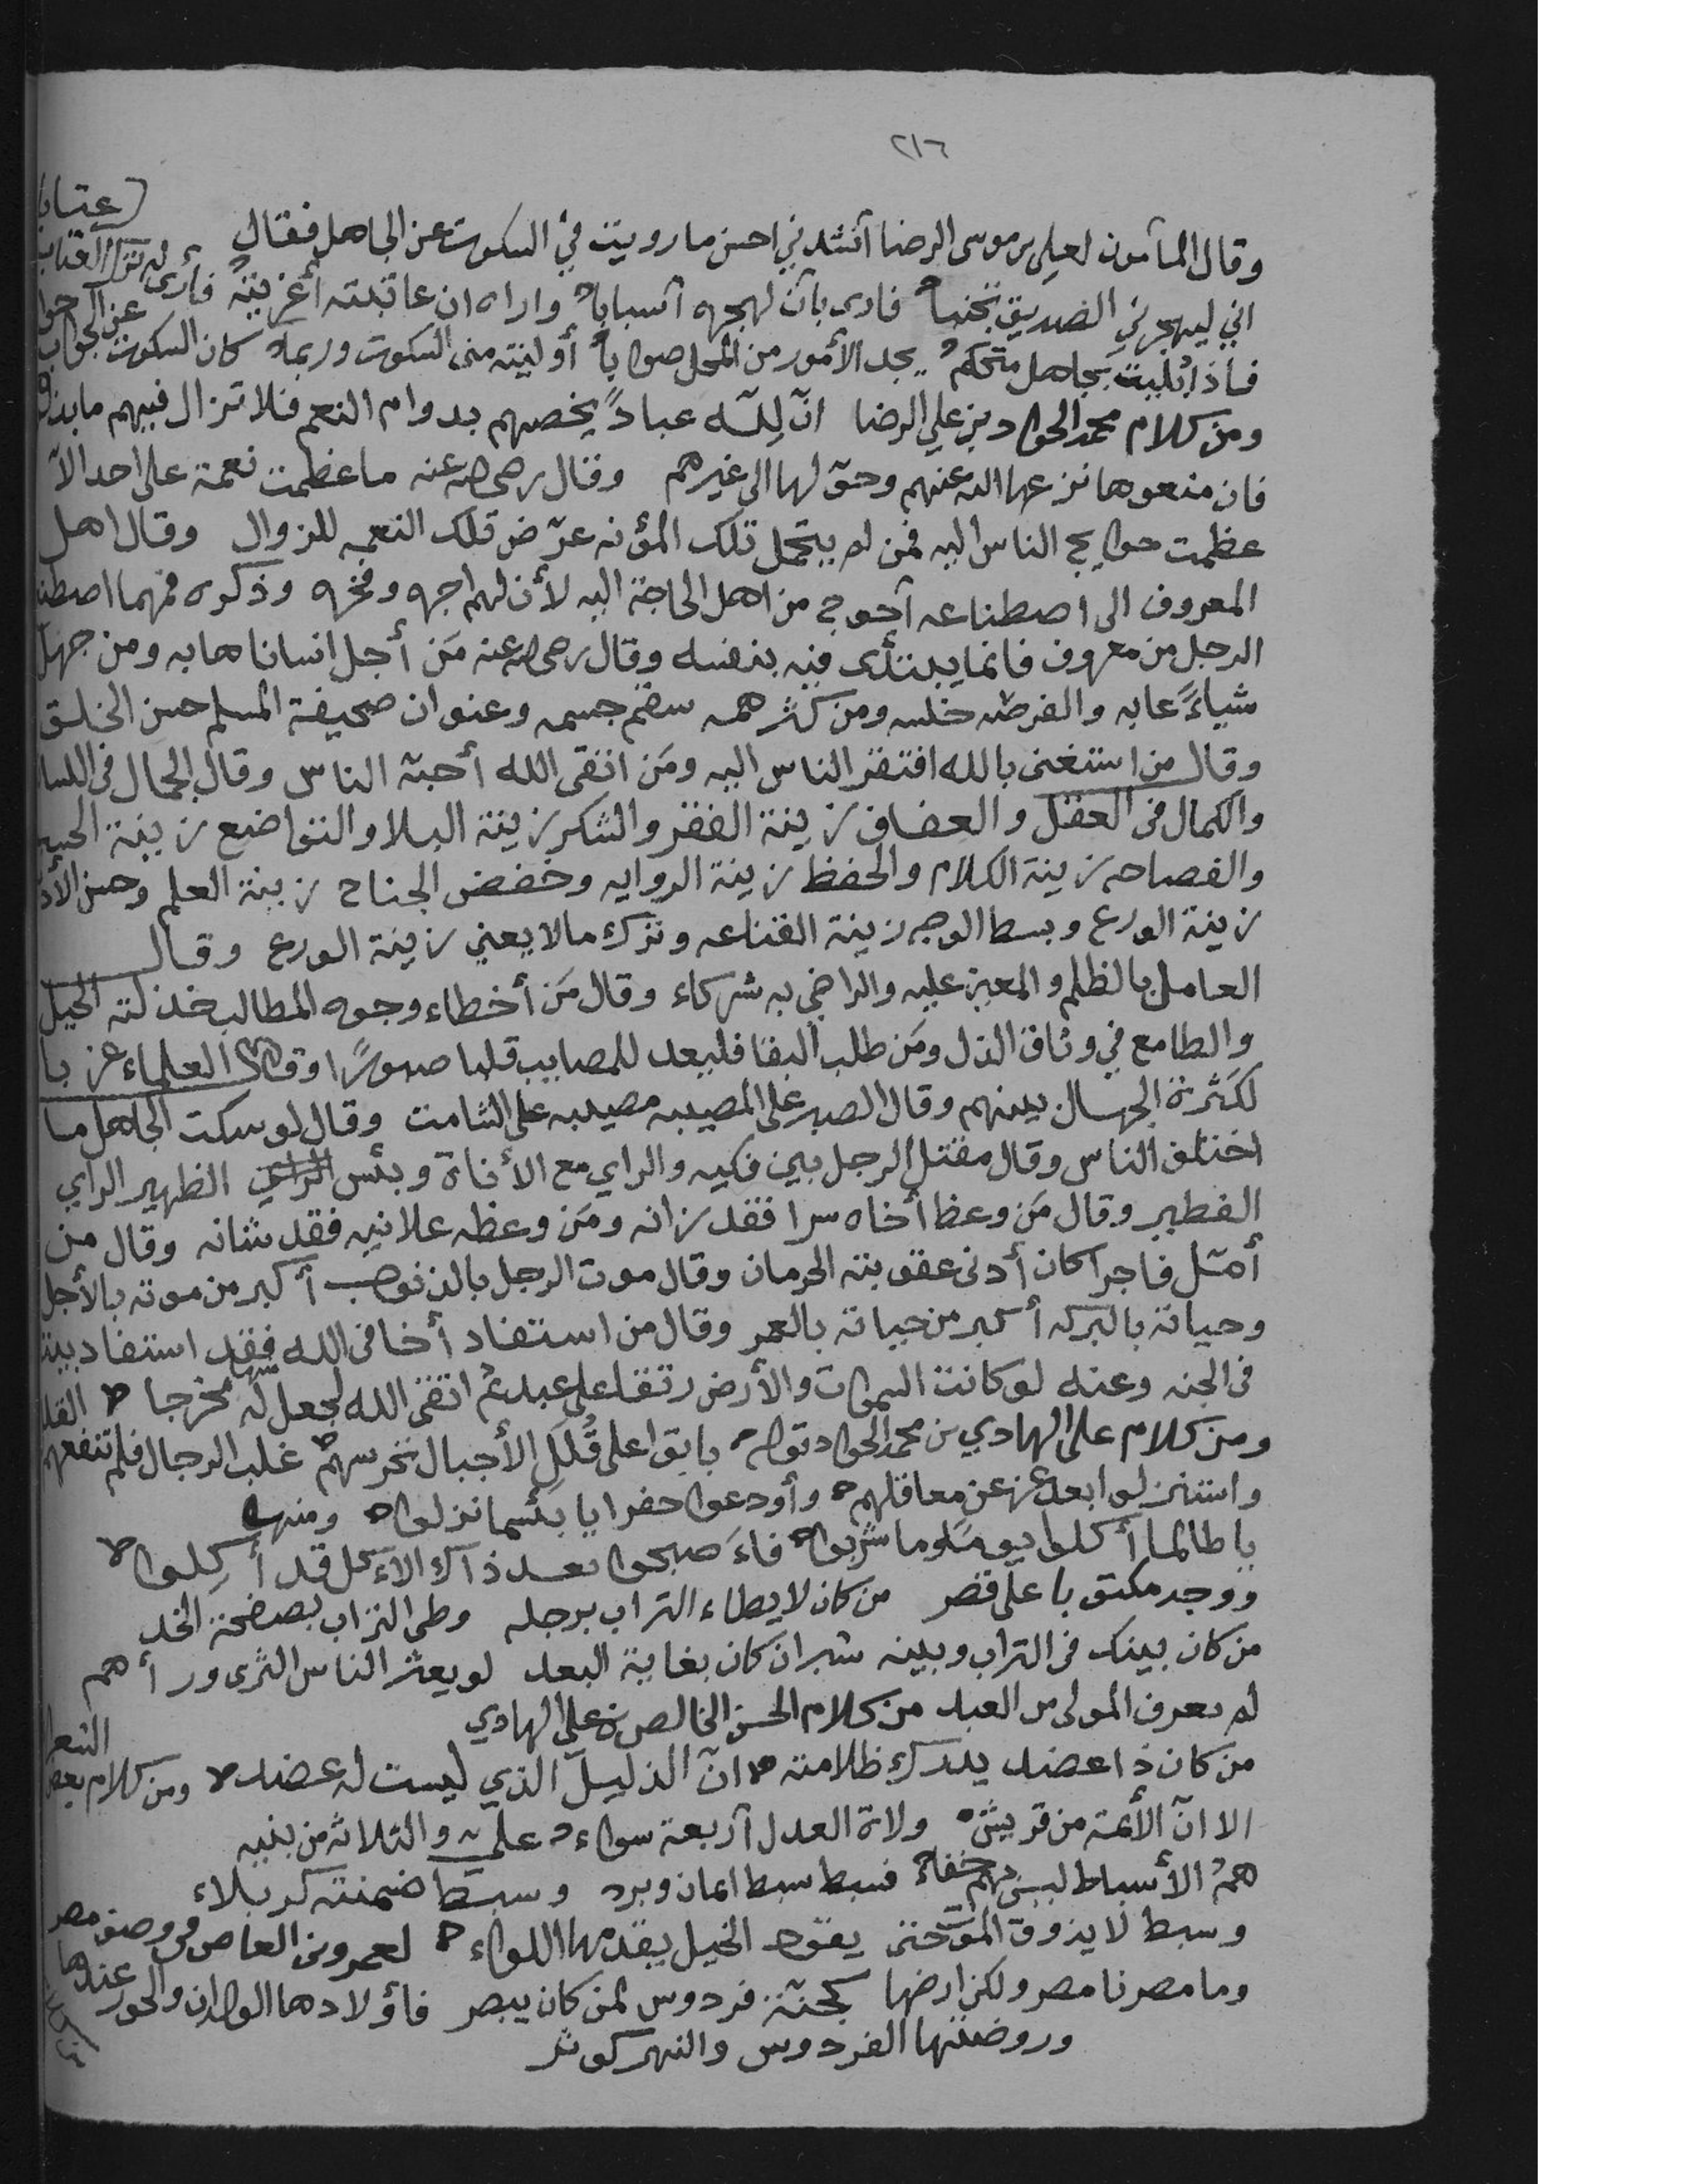 ٢١٦
وقال المأمون لعلي بن موسى الرضا أنشدني احسن ما رويت في السكوت عن الجاهل فقال
اني ليهجرني الصديق تجنبا فارى بان لهجره أسبابا واراه ان عاتبته أغريته فأرى له ترك العتاب عتابا
فاذا بُليت بجاهل متحكم يجد الأمور من المحل صوابا أوليته منى السكوت وربما كان السكوت عن الجواب جوا
ومن كلام محمد الجواد بن علي الرضا انّ لله عباداً يخصهم بدوام النعم فلا تزال فيهم ما بذلو
فان منعوها نزعها الله عنهم وحوّلها الى غيرهم وقال رضى الله عنه ما عظمت نعمة على احد الاّ
عظمت حوايج الناس اليه فمن لم يتحمل تلك المؤنه عرّض تلك النعمه للزوال وقال اهل
المعروف الى اصطناعه أحوج من اهل الحاجة اليه لأن لهم اجره وفخره وذكره فمهما اصطنا
الرجل من معروف فانما يبتدئ فيه بنفسه وقال رضى الله عنه مَن أجل انسانا هابه ومن جهل
شياءً عابه والفرصه خلسه ومن كثر همه سقم جسمه وعنوان صحيفة المسلم حسن الخلق
وقال من استغنى بالله افتقر الناس اليه ومَن اتقى الله أحبّه الناس وقال الجمال في اللسا
والكمال في العقل والعفاف زينة الفقر والشكر زينة البلا والتواضع زينة الحسب
والفصاحه زينة الكلام والحفظ زينة الروايه وخفض الجناح زينة العلم وحسن الأدب
زينة الورع وبسط الوجه زينة القناعه وترك ما لا يعني زينة الورع وقال
العامل بالظلم والمعين عليه والراضي به شركاء وقال مَن أخطاء وجوه المطالب خذلته الحيل
والطامع في وثاق الذل ومَن طلب البقا فليعد للمصايب قلبا صبورًا وقال العلماء غربا
لكثرة الجهال بينهم وقال الصبر على المصيبه مصيبه على الشامت وقال لو سكت الجاهل ما
اختلف الناس وقال مقتل الرجل بين فكيه والراي مع الأناة وبئس الظهير الراي
الفطير وقال مَن وعظ أخاه سرا فقد زانه ومَن وعظه علانيه فقد شانه وقال من
أمّل فاجرا كان أدنى عقوبته الحرمان وقال موت الرجل بالذنوب أكبر من موته بالأجل
وحياته بالبركه أكبر من حياته بالعمر وقال من استفاد أخا في الله فقد استفاد بيتا
في الجنه وعنه لو كانت السموات والأرض رتقا على عبد ثم اتقى الله لجعل له منها مخرجا
ومن كلام على الهادي بن محمد الجواد باتوا على قُلَلِ الأجبال تحرسهم غلب الرجال فلم تنفعهم القلل
واستنزلوا بعد عز عن معاقلهم وأودعوا حفرا يا بئسما نزلوا ومنها
يا طالما أكلوا يوما وما شربوا فاصبحوا بعد ذاك الاكل قد أكِلوا
ووجد مكتوبا على قصر من كان لا يطاء التراب برجله وطى التراب بصفحة الخد
من كان بينك في التراب وبينه شبران كان بغاية البعد لو بعثر الناس الثرى ورأهم
لم يعرف المولى من العبد من كلام الحسن الخالص بن علي الهادي
من كان ذا عضد يدرك ظلامته انّ الذليل الذي ليست له عضد ومن كلام بعض الشعرا
الا انّ الأئمة من قريش ولاة العدل أربعة سواء علي والثلاثة من بنيه
همُ الأسباط ليس بهم خفاء فسبط سبط ايمان وبرد وسبط ضمنته كربلاء
وسبط لا يذوق الموت حتى يقود الخيل يقدمها اللواء لعمرو بن العاص في وصف مصر
وما مصرنا مصر ولكن ارضها كجنّة فردوس لمن كان يبصر فأولادها الولدان والحور عندها
وروضتها الفردوس والنهر كوثر